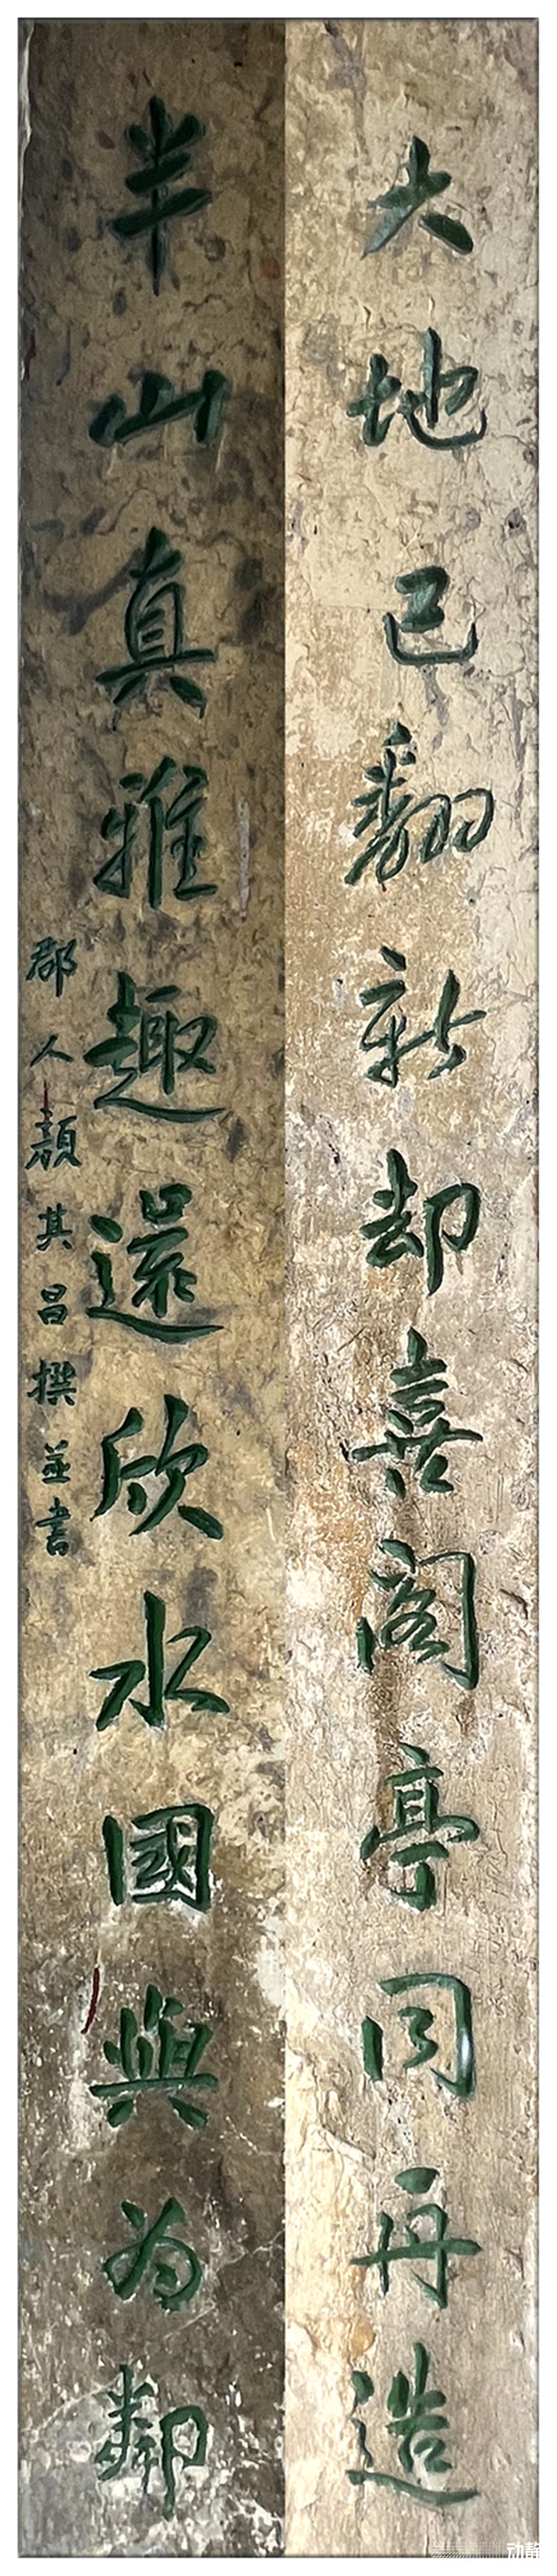 大地已翻新却喜阁亭同再造
半山真雅趣還欣水國與为鄰
郡人顏其昌撰並書
动静